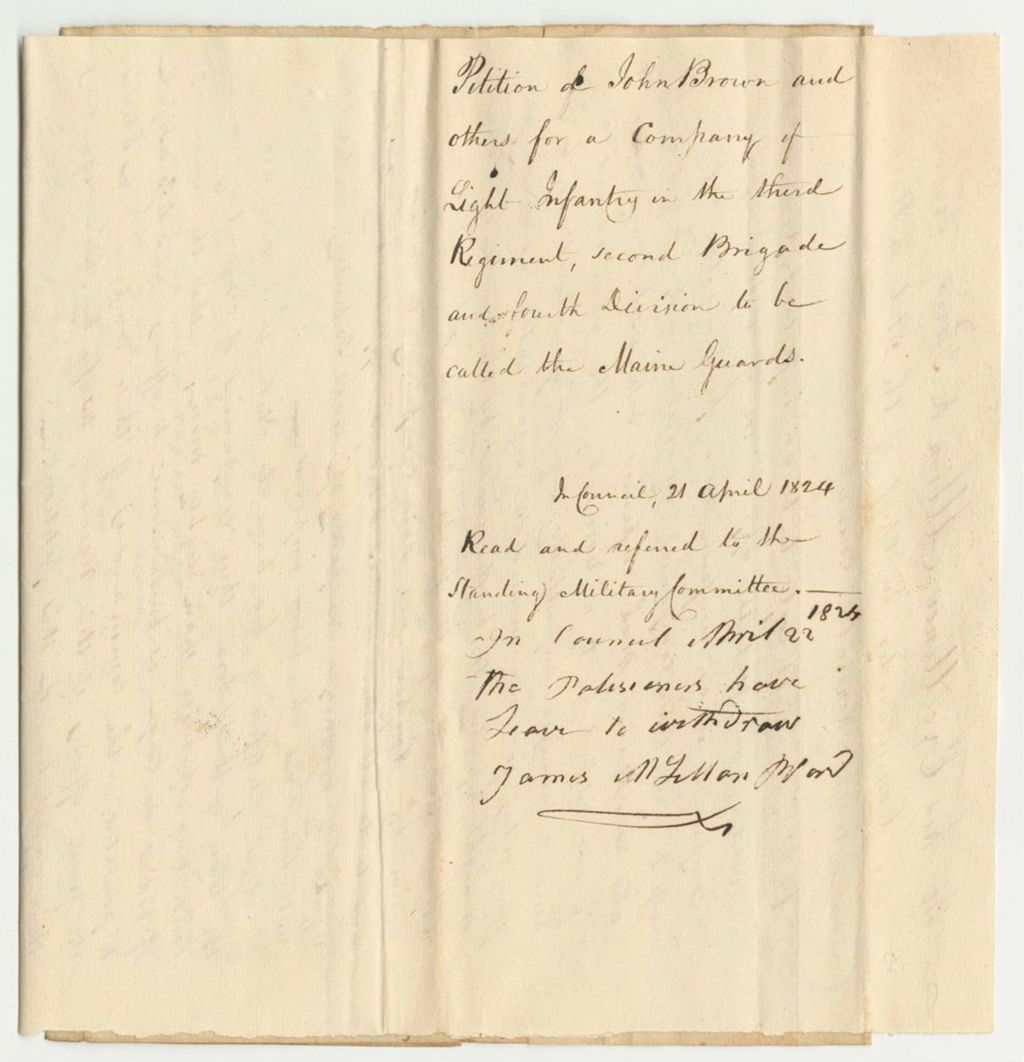 Petition of John Brown and
others for a Company of
Light Infantry in the third
Regiment, second Brigade
and fourth Division to be
called the Maine Guards.
In Council, 21 April 1824
Read and referred to the
Standing Military Committee. —
1824
In Council April 22
The Petisioners have
Leave to withdraw
James